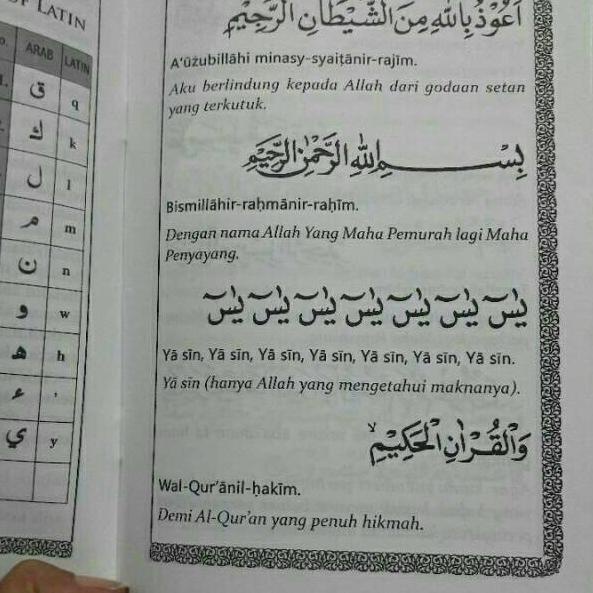 F LATIN
o. ARAB LATIN
ق q
ك k
ل l
م m
ن n
و w
ه h
ء '
ي y
اَعُوْذُ بِاللّٰهِ مِنَ الشَّيْطَانِ الرَّجِيْمِ
A'ūżubillāhi minasy-syaiṭānir-rajīm.
Aku berlindung kepada Allah dari godaan setan
yang terkutuk.
بِسْمِ اللّٰهِ الرَّحْمٰنِ الرَّحِيْمِ
Bismillāhir-raḥmānir-raḥīm.
Dengan nama Allah Yang Maha Pemurah lagi Maha
Penyayang.
يٰسۤ يٰسۤ يٰسۤ يٰسۤ يٰسۤ يٰسۤ يٰسۤ
Yā sīn, Yā sīn, Yā sīn, Yā sīn, Yā sīn, Yā sīn, Yā sīn.
Yā sīn (hanya Allah yang mengetahui maknanya).
وَالْقُرْاٰنِ الْحَكِيْمِۙ
Wal-Qur'ānil-ḥakīm.
Demi Al-Qur'an yang penuh hikmah.